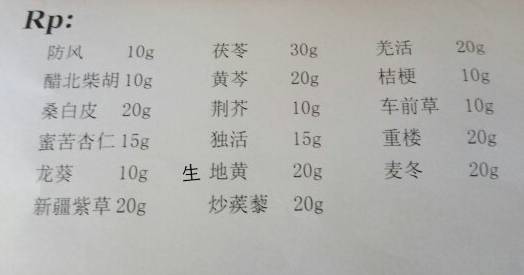 Rp:
防风 10g 茯苓 30g 羌活 20g
醋北柴胡 10g 黄芩 20g 桔梗 10g
桑白皮 20g 荆芥 10g 车前草 10g
蜜苦杏仁 15g 独活 15g 重楼 20g
龙葵 10g 生 地黄 20g 麦冬 20g
新疆紫草 20g 炒蒺藜 20g